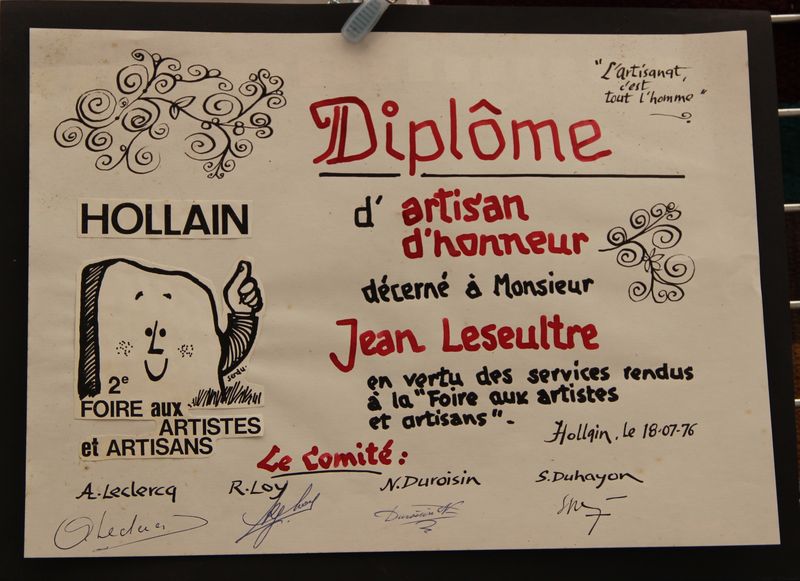 "L'artisanat,
c'est
tout l'homme"
Diplôme
d' artisan
d'honneur
décerné à Monsieur
Jean Leseultre
en vertu des services rendus
à la "Foire aux artistes
et artisans".
Hollain, le 18-07-76
HOLLAIN
2e
FOIRE aux
ARTISTES
et ARTISANS
Le Comité:
A. Leclercq
R. Loy
N. Duroisin
S. Duhayon